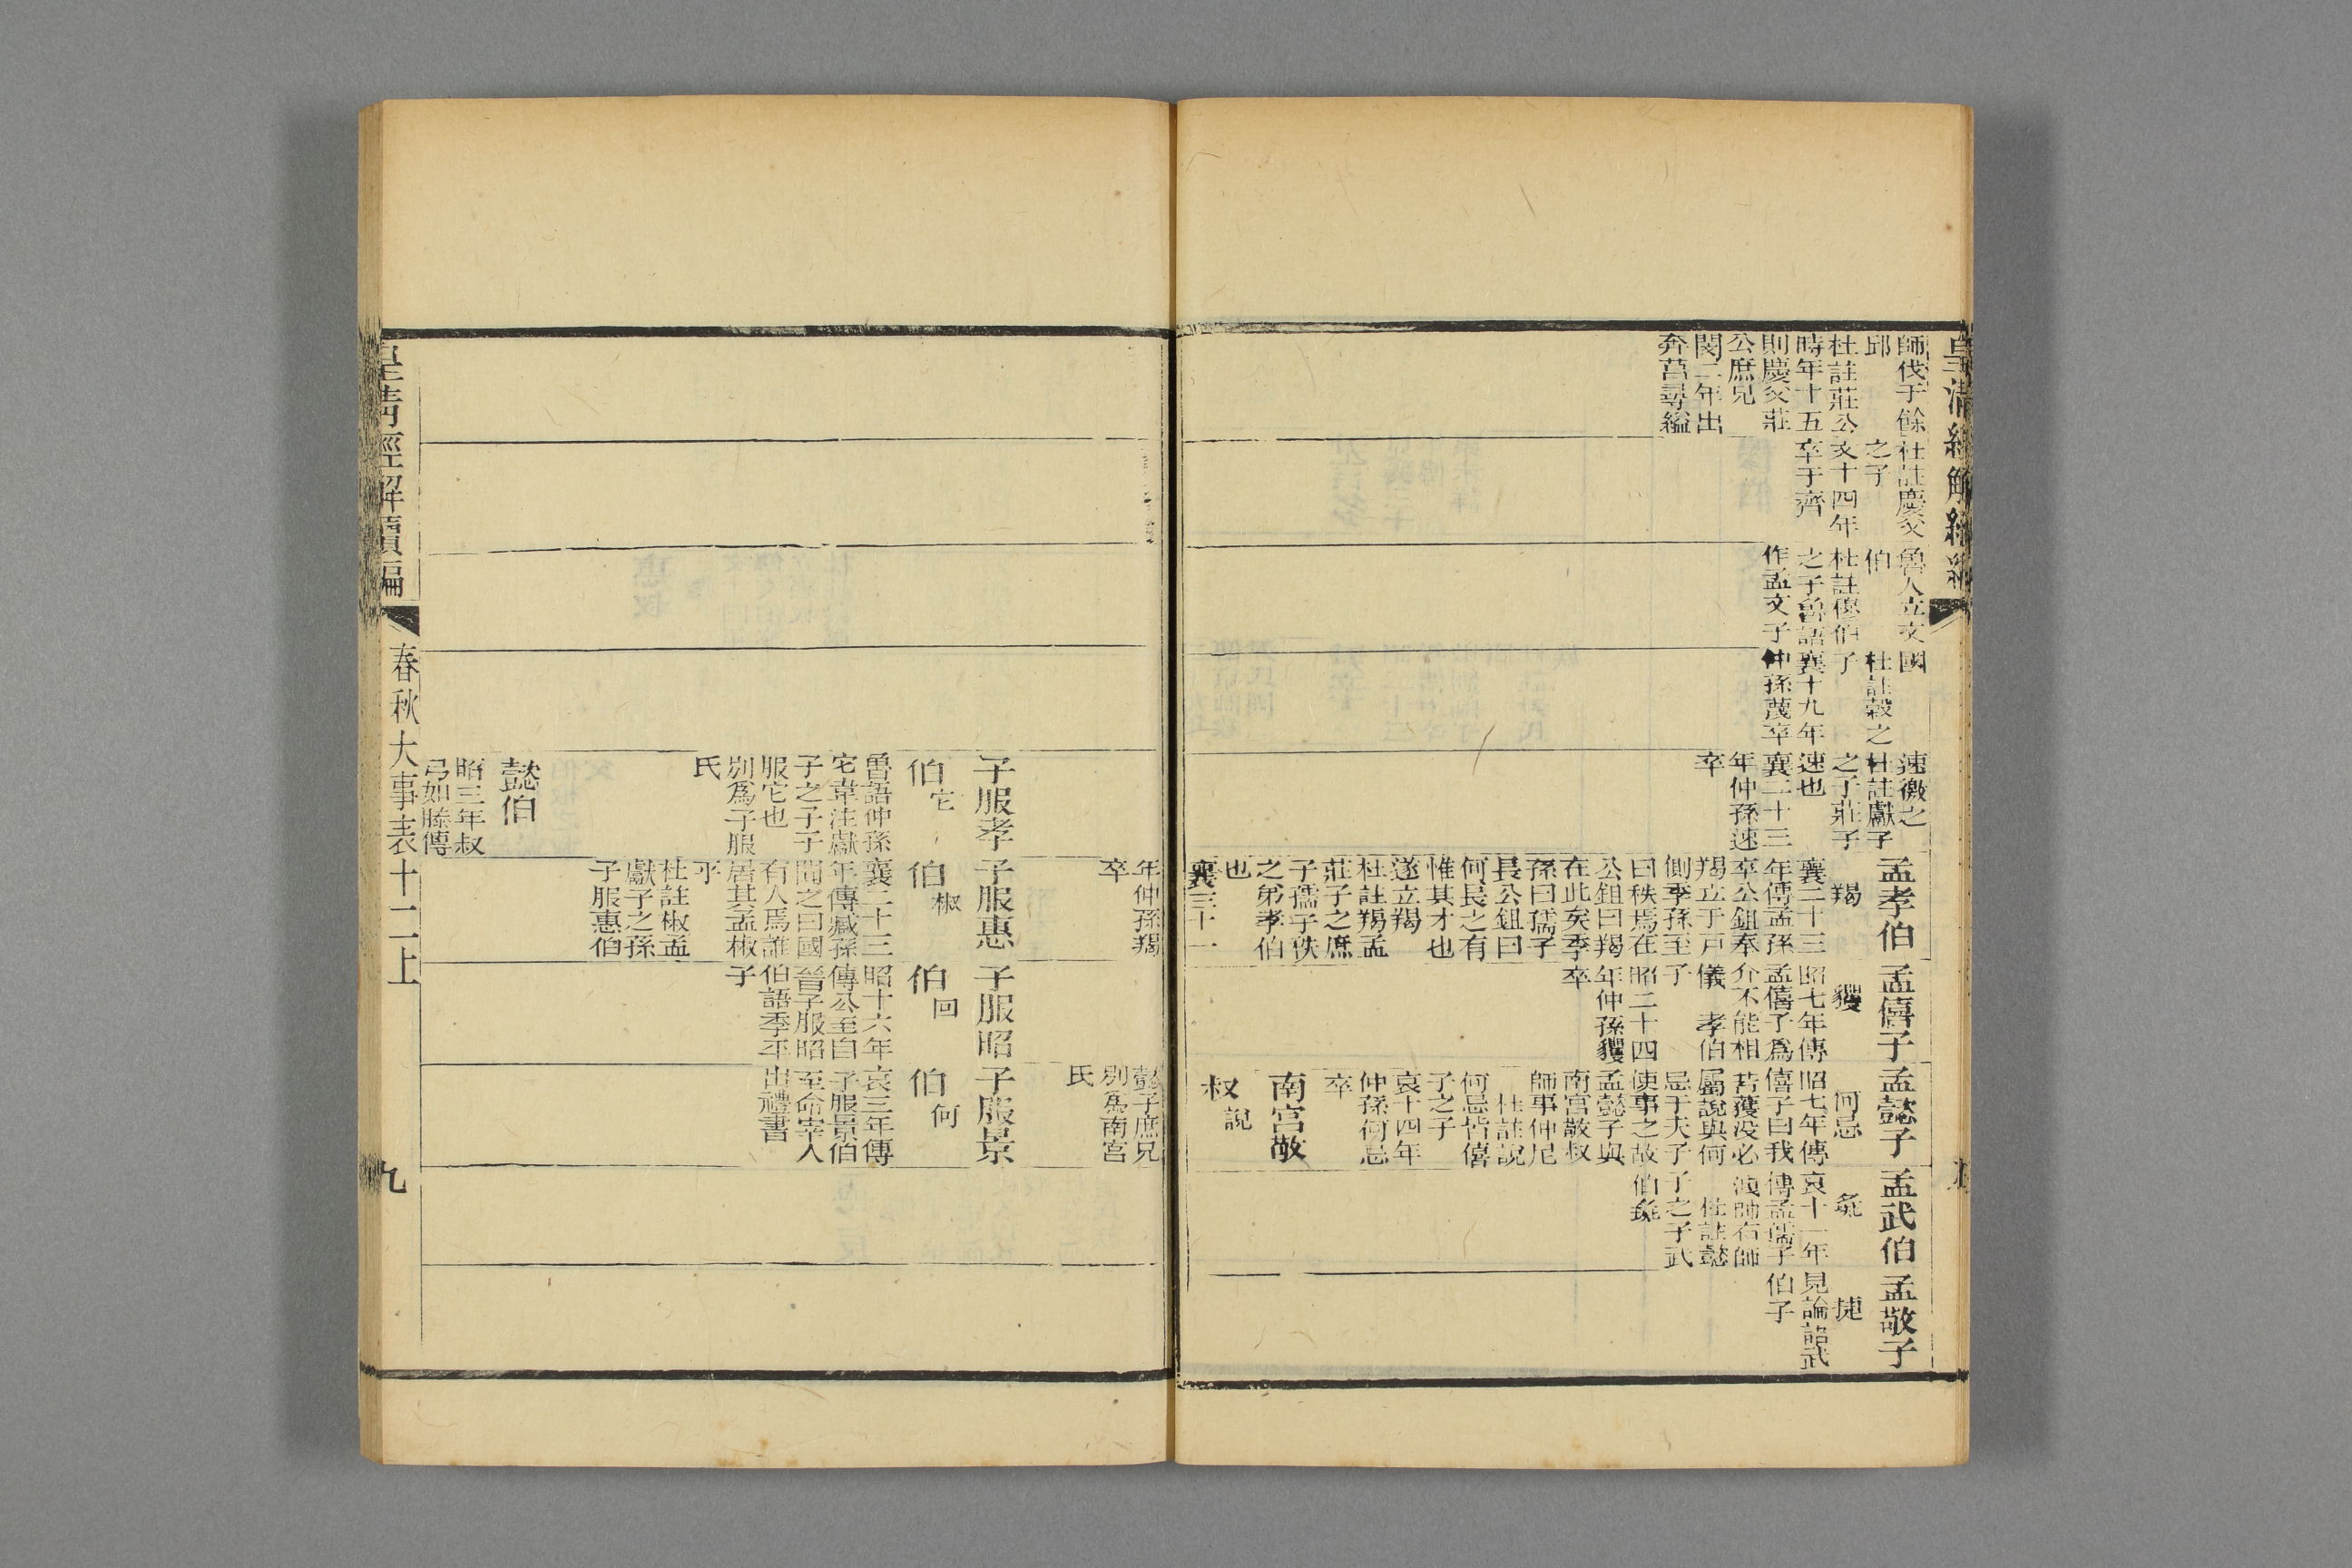 皇清經解續編
師伐于餘
邱
杜註莊公
時年十五
則慶父莊
公庶兄
閔二年出
奔莒尋縊
杜註慶父
之子
文十四年
卒于齊
魯人立文
伯
杜註穆伯
之子魯語
作孟文子
國
杜註穀之
子
襄十九年
仲孫蔑卒
速徼之
杜註獻子
之子莊子
速也
襄二十三
年仲孫速
卒
孟孝伯
羯
襄二十三
年傳孟孫
卒公鉏奉
羯立于戸
側季孫至
曰秩焉在
公鉏曰羯
在此矣季
孫曰孺子
長公鉏曰
何長之有
惟其才也
遂立羯
杜註羯孟
莊子之庶
子孺子秩
之弟孝伯
也
襄三十一
孟僖子
貜
昭七年傳
孟僖子爲
介不能相
儀 孝伯
子
昭二十四
年仲孫貜
卒
孟懿子
何忌
昭七年傳
僖子曰我
若獲没必
屬說與何
忌于夫子
使事之故
孟懿子與
南宮敬叔
師事仲尼
杜註說
何忌皆僖
子之子
哀十四年
仲孫何忌
卒
南宮敬
叔說
孟武伯
彘
哀十一年
傳孟孺子
洩帥右師
杜註懿
子之子武
伯彘
孟敬子
捷
見論語武
伯子
年仲孫羯
卒
懿子庶兄
別爲南宮
氏
子服孝
伯它
魯語仲孫
它韋注獻
子之子子
服它也
別爲子服
氏
懿伯
昭三年叔
弓如滕傳
子服惠
伯椒
襄二十三
年傳臧孫
聞之曰國
有人焉誰
居其孟椒
乎
杜註椒孟
獻子之孫
子服惠伯
子服昭
伯回
昭十六年
傳公至自
晉子服昭
伯語季平
子
子服景
伯何
哀三年傳
子服景伯
至命宰人
出禮書
皇清經解續編
春秋大事表十二上
九